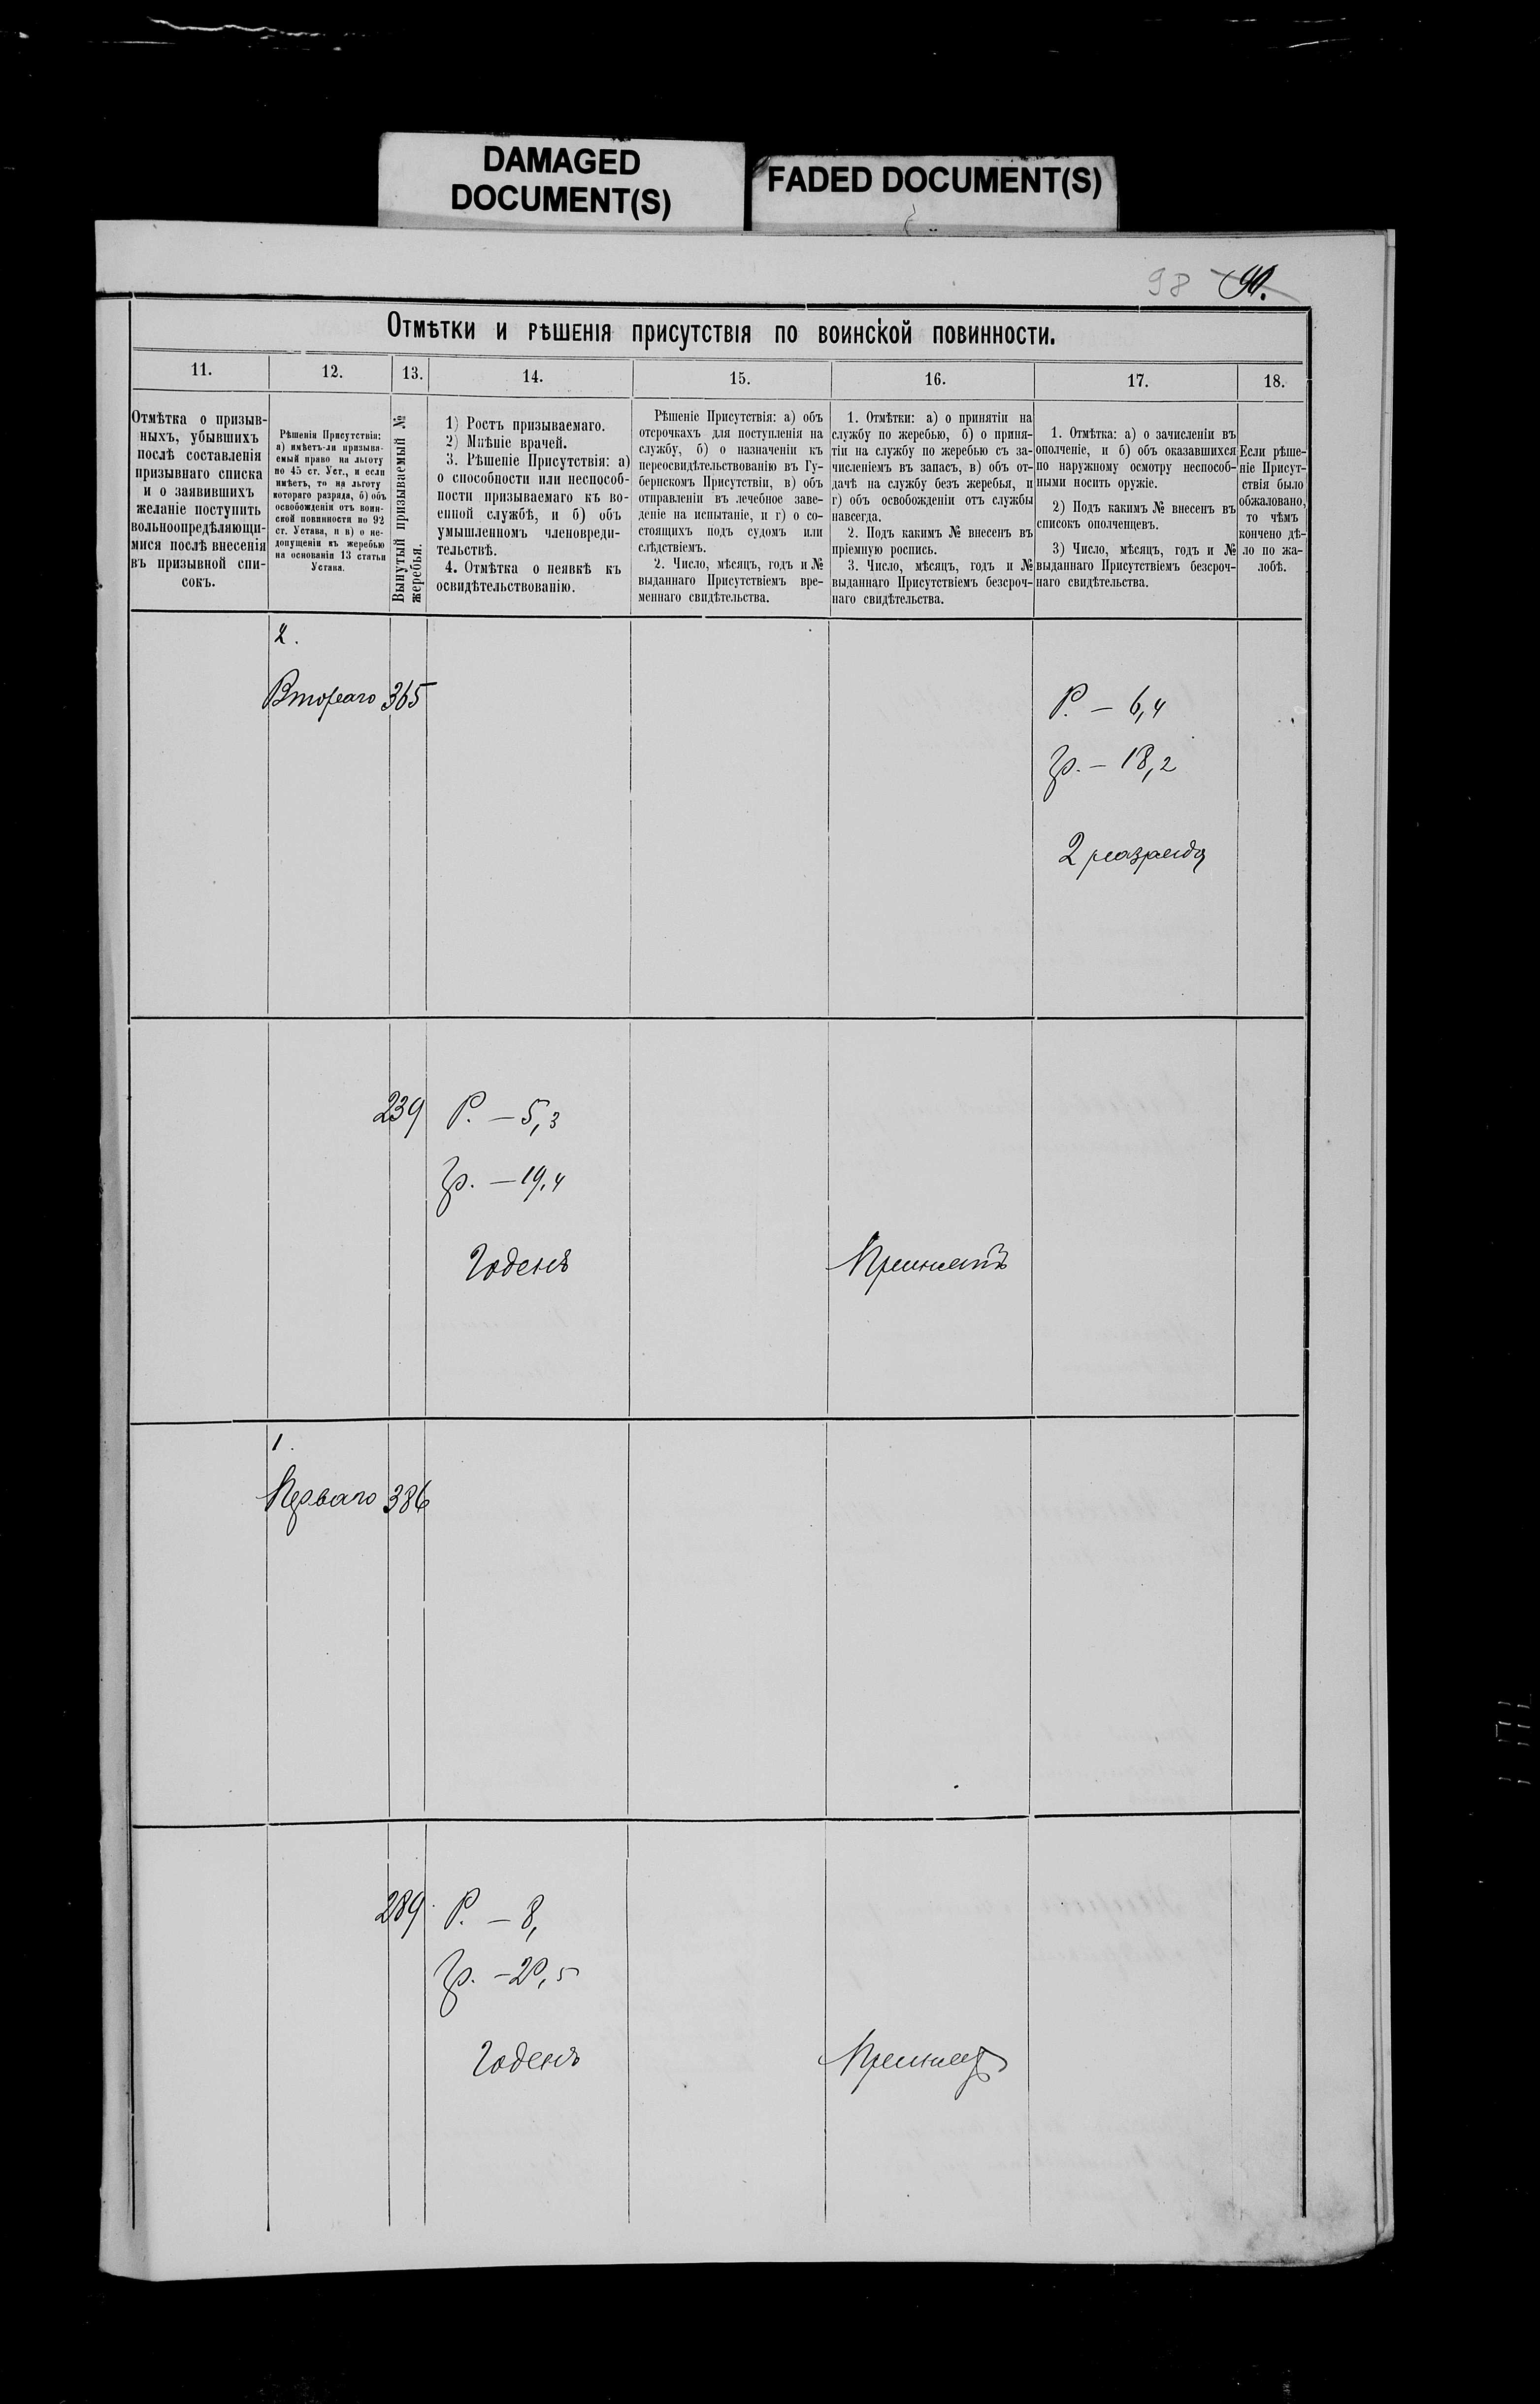 DAMAGED
DOCUMENT(S)
FADED DOCUMENT(S)
98 90.
Отмѣтки и рѣшенія присутствія по воинской повинности.
11.
12.
13.
14.
15.
16.
17.
18.
Отмѣтка о призыв-
ныхъ, убывшихъ
послѣ составленія
призывнаго списка
и о заявившихъ
желаніе поступить
вольноопредѣляющи-
мися послѣ внесенія
въ призывной спи-
сокъ.
Рѣшенія Присутствія:
а) имѣетъ-ли призыва-
емый право на льготу
по 45 ст. Уст., и если
имѣетъ, то на льготу
котораго разряда, б) объ
освобожденіи отъ воин-
ской повинности по 92
ст. Устава, и в) о не-
допущеніи къ жеребью
на основаніи 13 статьи
Устава.
Вынутый призываемый №
жеребья.
1) Ростъ призываемаго.
2) Мнѣніе врачей.
3. Рѣшеніе Присутствія: а)
о способности или неспособ-
ности призываемаго къ во-
енной службѣ, и б) объ
умышленномъ членовреди-
тельствѣ.
4. Отмѣтка о неявкѣ къ
освидѣтельствованію.
Рѣшеніе Присутствія: а) объ
отсрочкахъ для поступленія на
службу, б) о назначеніи къ
переосвидѣтельствованію въ Гу-
бернскомъ Присутствіи, в) объ
отправленіи въ лечебное заве-
деніе на испытаніе, и г) о со-
стоящихъ подъ судомъ или
слѣдствіемъ.
2. Число, мѣсяцъ, годъ и №
выданнаго Присутствіемъ вре-
меннаго свидѣтельства.
1. Отмѣтки: а) о принятіи на
службу по жеребью, б) о приня-
тіи на службу по жеребью съ за-
численіемъ въ запасъ, в) объ от-
дачѣ на службу безъ жеребья, и
г) объ освобожденіи отъ службы
навсегда.
2. Подъ какимъ № внесенъ въ
пріемную роспись.
3. Число, мѣсяцъ, годъ и №
выданнаго Присутствіемъ безсроч-
наго свидѣтельства.
1. Отмѣтка: а) о зачисленіи въ
ополченіе, и б) объ оказавшихся
по наружному осмотру неспособ-
ными носить оружіе.
2) Подъ какимъ № внесенъ въ
списокъ ополченцевъ.
3) Число, мѣсяцъ, годъ и №
выданнаго Присутствіемъ безсроч-
наго свидѣтельства.
Если рѣше-
ніе Присут-
ствія было
обжаловано,
то чѣмъ
кончено дѣ-
ло по жа-
лобѣ.
2.
Втораго 365
Р. — 6,4
гр. — 18,2
2 разряда
239 Р. — 5,3
гр. — 19,4
Годенъ Принятъ
1.
Перваго 386
289 Р. — 8,
гр. — 20,5
Годенъ Принятъ